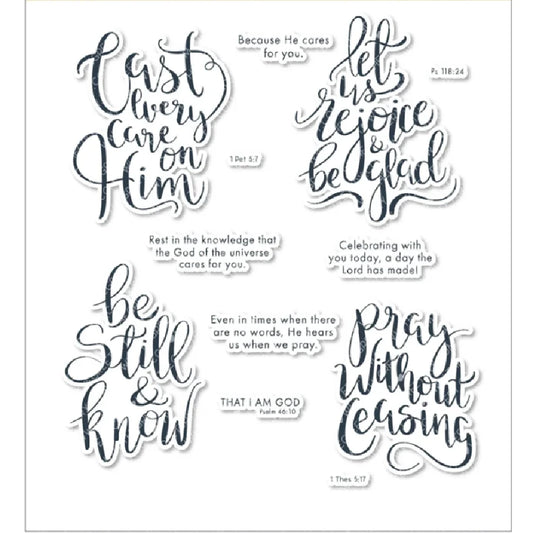 Cast
every
care
on
Him
Because He cares
for you.
1 Pet 5:7
let
us
rejoice
&
be glad
Ps 118:24
Rest in the knowledge that
the God of the universe
cares for you.
Celebrating with
you today, a day the
Lord has made!
be
Still
&
know
Even in times when there
are no words, He hears
us when we pray.
THAT I AM GOD
Psalm 46:10
pray
Without
Ceasing
1 Thes 5:17